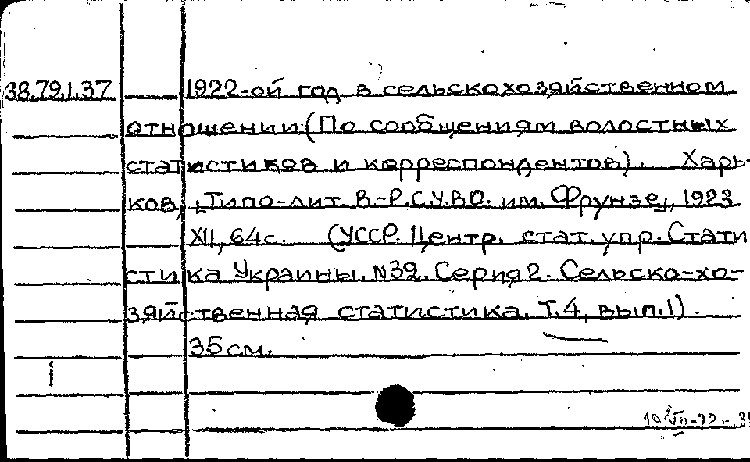 38.79.1.37 1922-ой год в сельскохозяйственном
отношении (По сообщениям волостных
статистиков и корреспондентов). Харь-
ков, "Типо-лит. В.-Р.С.У.В.О. им. Фрунзе", 1923
XII, 64 с. (УССР. Центр. стат. упр. Стати
стика Украины. №39. Серия 2. Сельско-хо-
зяйственная статистика. Т.4, вып.1).
35 см.